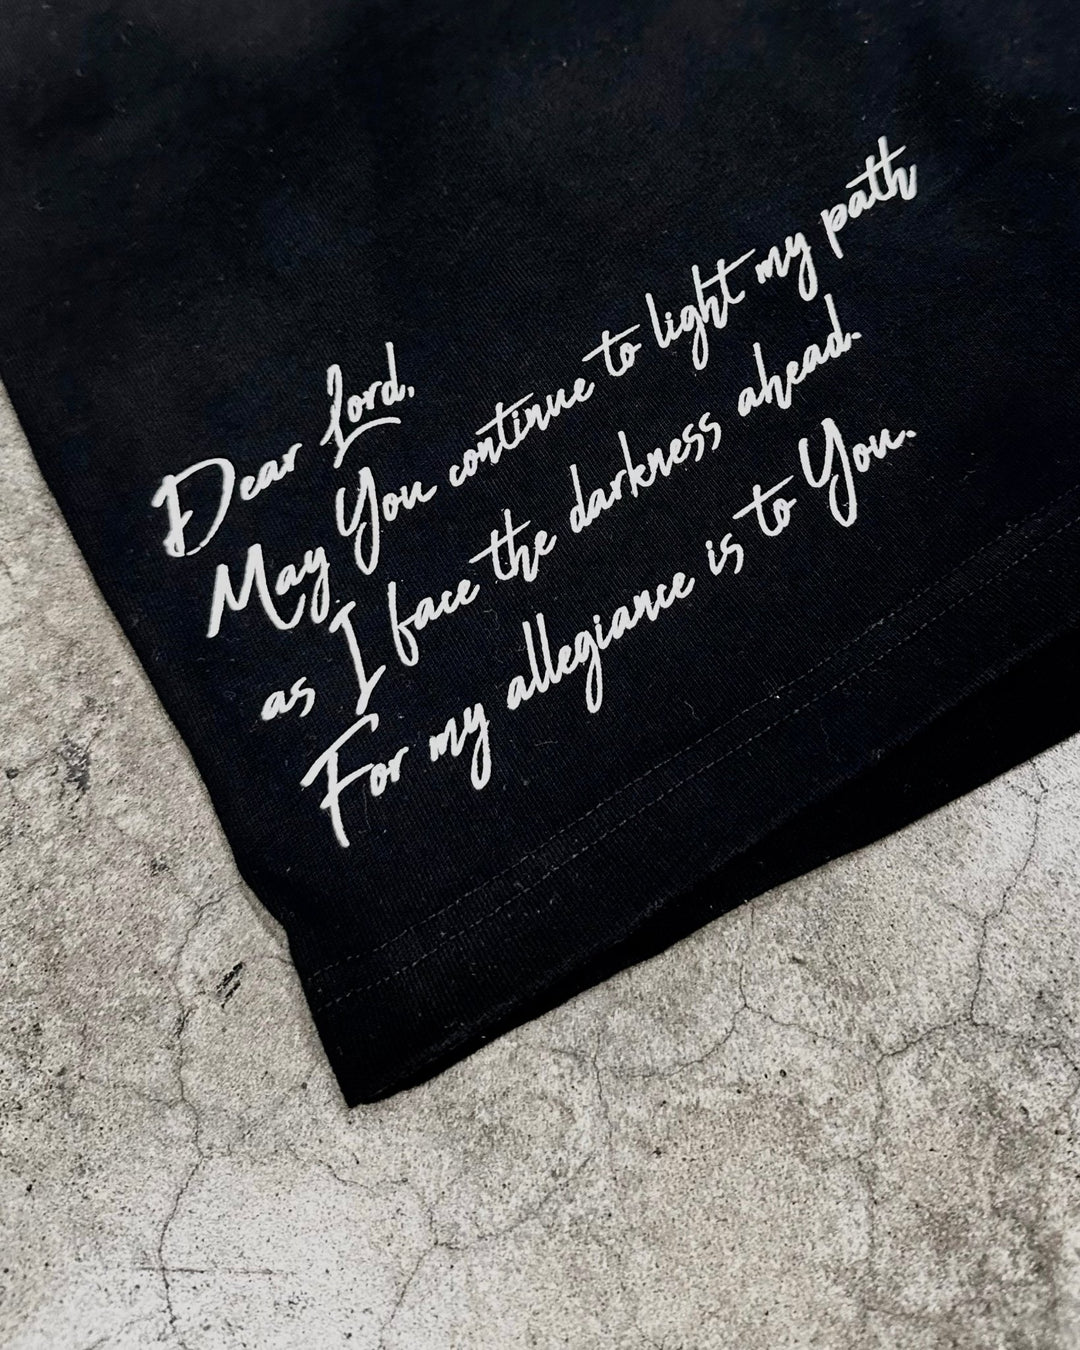 Dear Lord,
May You continue to light my path
as I face the darkness ahead.
For my allegiance is to You.